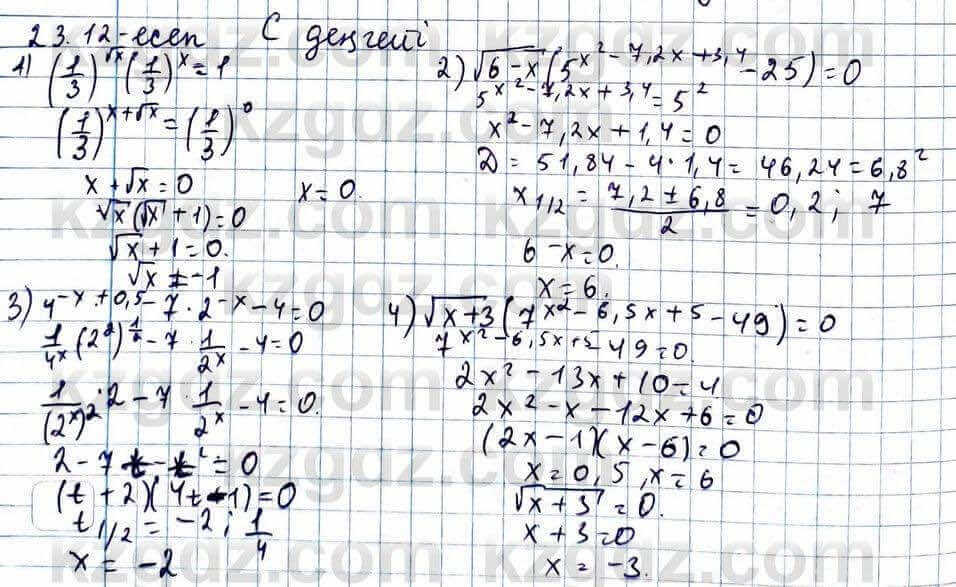 23.12-есеп C деңгейі
1) (1/3)^√x (1/3)^x = 1
(1/3)^(x+√x) = (1/3)^0
x + √x = 0 x = 0.
√x(√x + 1) = 0
√x + 1 = 0.
√x ≠ -1
2) √6-x (5^(x²-7,2x+3,4) - 25) = 0
5^(x²-7,2x+3,4) = 5²
x² - 7,2x + 1,4 = 0
D = 51,84 - 4·1,4 = 46,24 = 6,8²
x1/2 = (7,2 ± 6,8)/2 = 0,2; 7
6 - x = 0.
x = 6.
3) 4^(-x+0,5) - 7·2^(-x) - 4 = 0
1/4^x (2²)^(1/2) - 7·1/2^x - 4 = 0
1/(2^x)²·2 - 7·1/2^x - 4 = 0.
(t + 2)(4t - 1) = 0
t1/2 = -2; 1/4
x = -2
4) √x+3 (7^(x²-6,5x+5) - 49) = 0
7^(x²-6,5x+5) - 49 = 0
2x² - 13x + 10 = 4
2x² - x - 12x + 6 = 0
(2x - 1)(x - 6) = 0
x = 0,5, x = 6
√x+3 = 0.
x + 3 = 0
x = -3.
kzgdz.com